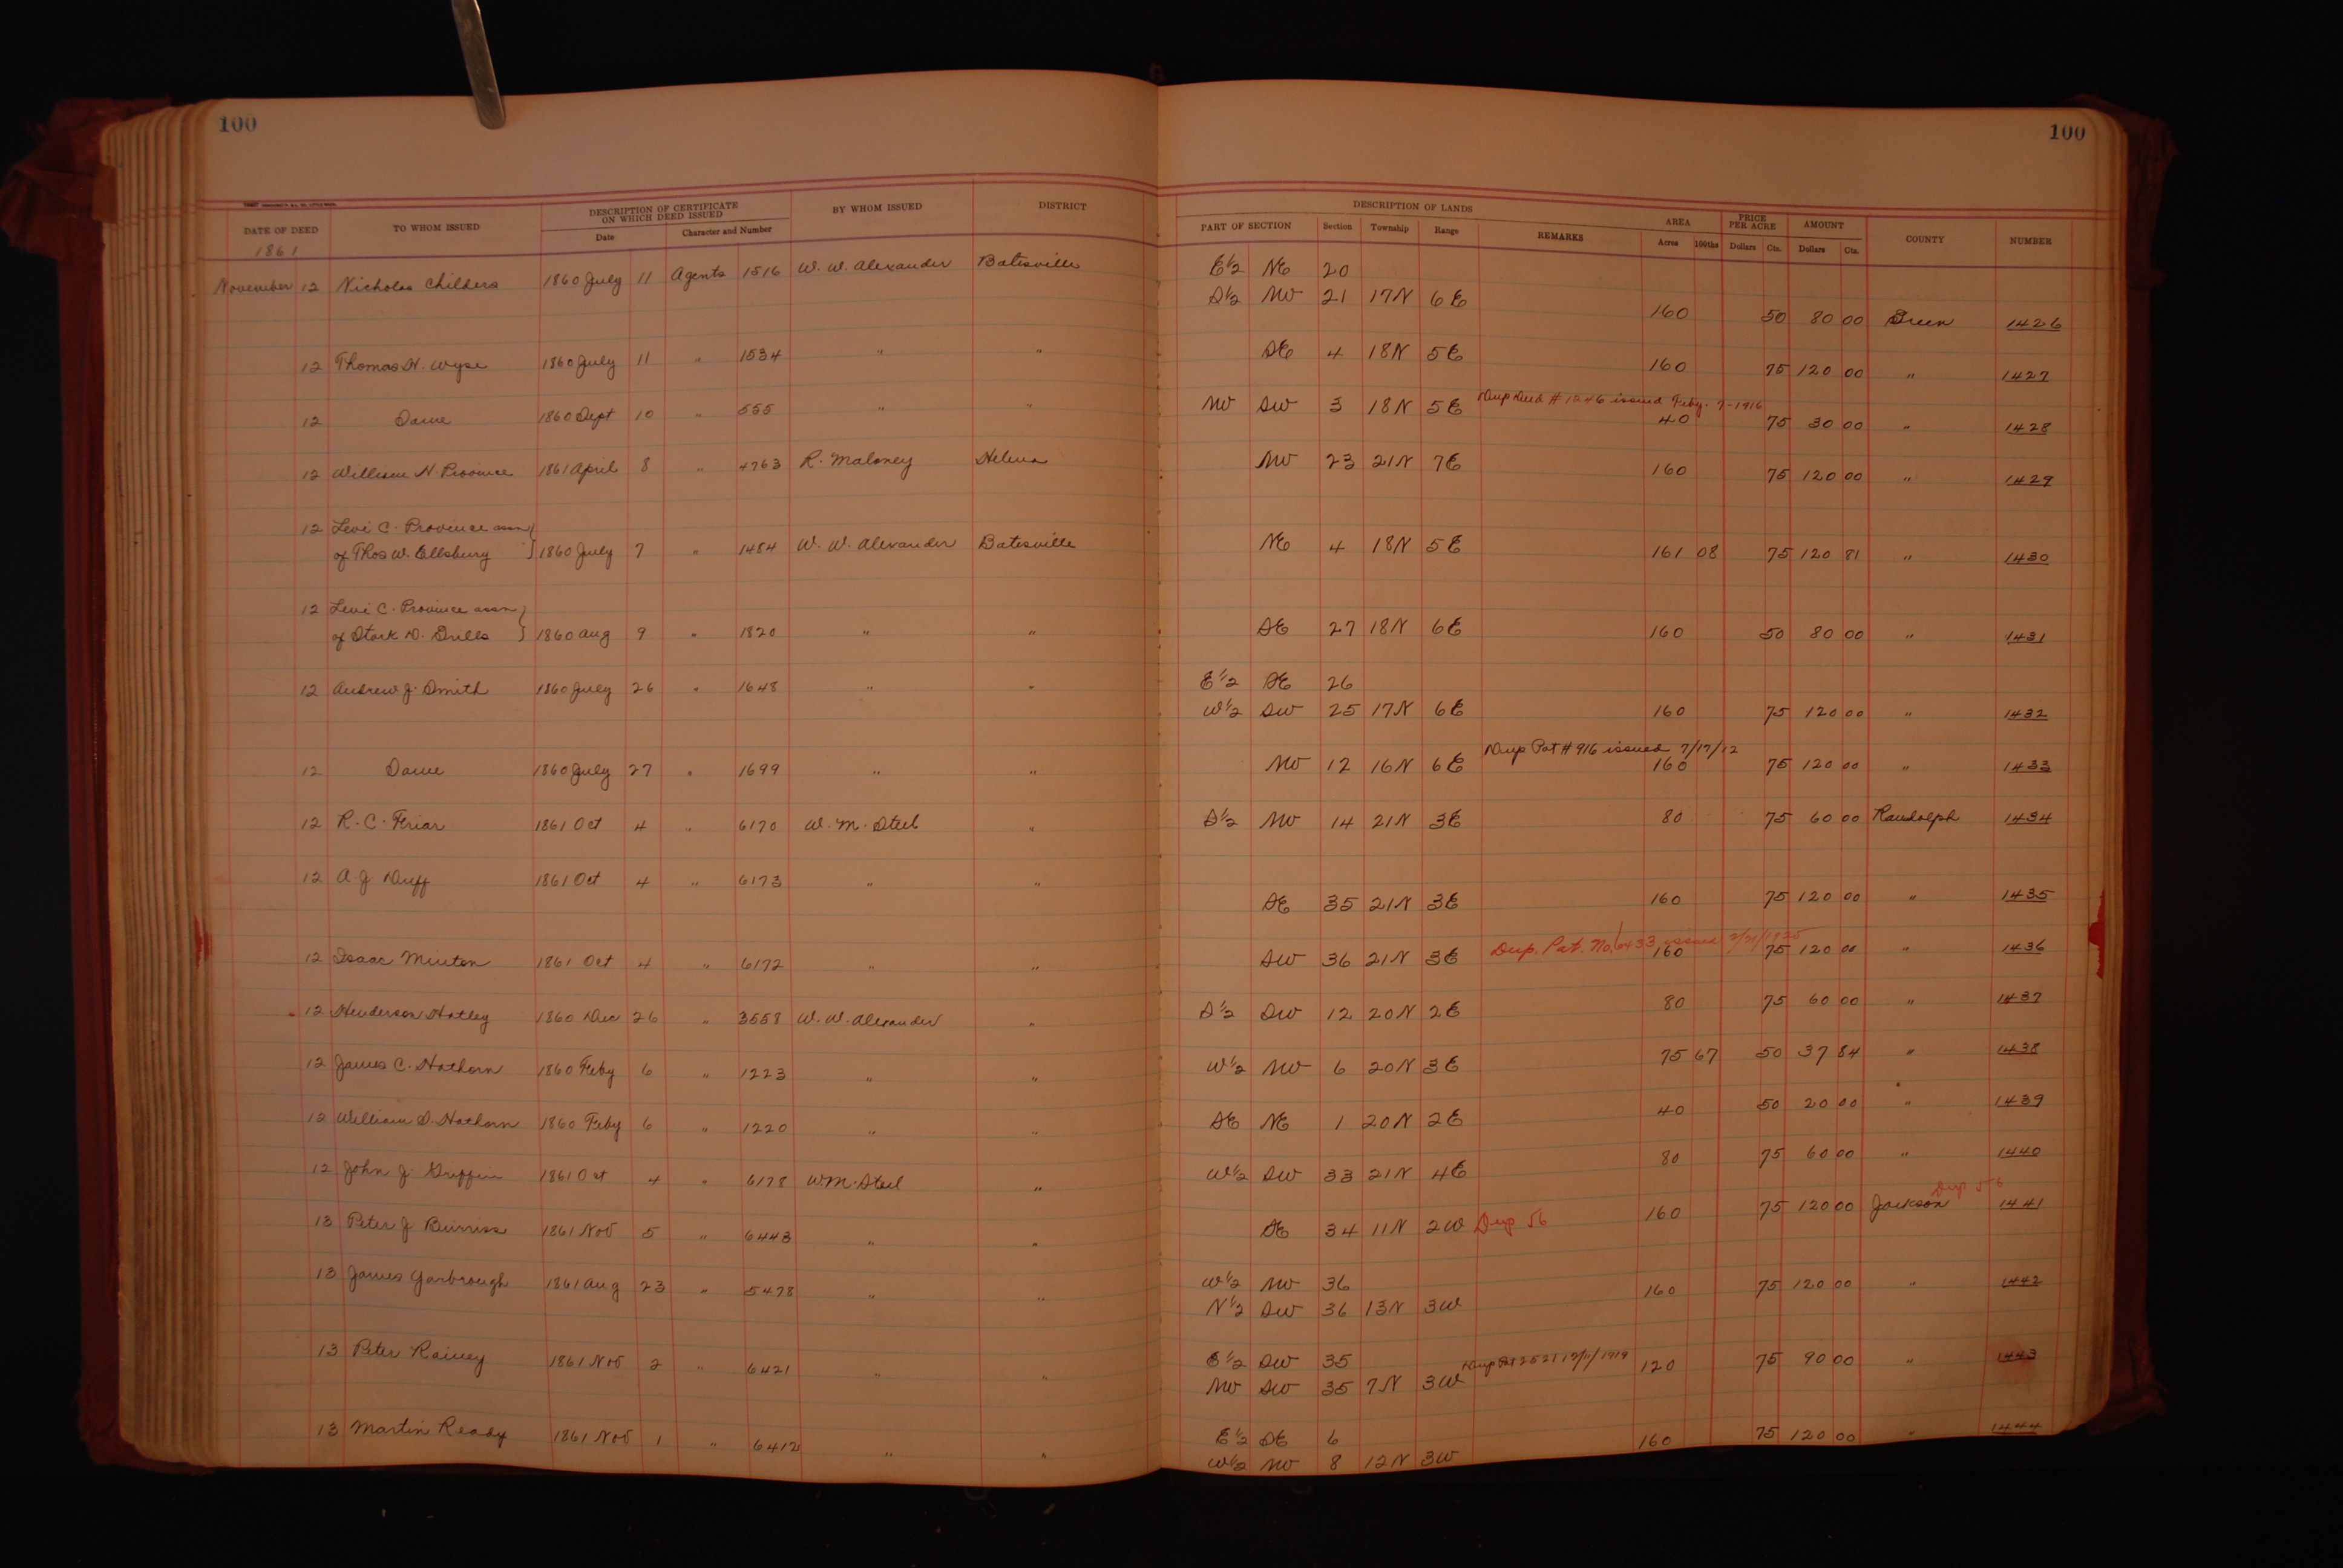 100 100
DESCRIPTION OF CERTIFICATE ON WHICH DEED ISSUED BY WHOM ISSUED DISTRICT DESCRIPTION OF LANDS AREA PRICE PER ACRE AMOUNT
DATE OF DEED TO WHOM ISSUED Date Character and Number PART OF SECTION Section Township Range REMARKS Acres 100ths Dollars Cts. Dollars Cts. COUNTY NUMBER
1861
November 12 Nicholas Childers 1860 July 11 Agents 1516 W. W. Alexander Batesville E½ NE 20
S½ NW 21 17N 6E 160 50 80 00 Green 1426
12 Thomas H. Wyse 1860 July 11 " 1534 " " SE 4 18N 5E 160 75 120 00 " 1427
Dup Deed # issued Feby. 7-1916
12 Same 1860 Sept 10 " 555 " " NW SW 3 18N 5E 40 75 30 00 " 1428
12 William N. Province 1861 April 8 " 4763 R. Maloney Helena NW 23 21N 7E 160 75 120 00 " 1429
12 Levi C. Province assn
of Thos W. Ellsbury 1860 July 7 " 1484 W. W. Alexander Batesville NE 4 18N 5E 161 08 75 120 81 " 1430
12 Levi C. Province assn
of Stark D. 1860 Aug 9 " 1820 " " SE 27 18N 6E 160 50 80 00 " 1431
12 Andrew J. Smith 1860 July 26 " 1648 " " E½ SE 26
W½ SW 25 17N 6E 160 75 120 00 " 1432
Dup Pat # 916 issued 7/17/12
12 Same 1860 July 27 " 1699 " " NW 12 16N 6E 160 75 120 00 " 1433
12 R. C. Friar 1861 Oct 4 " 6170 W. M. Steel " S½ NW 14 21N 3E 80 75 60 00 Randolph 1434
12 A J Duff 1861 Oct 4 " 6173 " " SE 35 21N 3E 160 75 120 00 " 1435
Dup. Pat. No. issued
12 Isaac Minton 1861 Oct 4 " 6172 " " SW 36 21N 3E 160 75 120 00 " 1436
12 Henderson Hatley 1860 Dec 26 " 3558 W. W. Alexander " S½ SW 12 20N 2E 80 75 60 00 " 1437
12 James C. Hathorn 1860 Feby 6 " 1223 " " W½ NW 6 20N 3E 75 67 50 37 84 " 1438
12 William S. Hathorn 1860 Feby 6 " 1220 " " SE NE 1 20N 2E 40 50 20 00 " 1439
12 John J. Griffin 1861 Oct 4 " 6178 W M. Steel " W½ SW 33 21N 4E 80 75 60 00 " 1440
Dup 56
13 Peter J Burriss 1861 Nov 5 " 6443 " " SE 34 11N 2W Dup 56 160 75 120 00 Jackson 1441
13 James Yarbrough 1861 Aug 23 " 5478 " " W½ NW 36
N½ SW 36 13N 3W 160 75 120 00 " 1442
13 Peter Rainey 1861 Nov 2 " 6421 " " E½ SW 35
NW SW 35 7N 3W Dup Pat 2521 12/11/1919 120 75 90 00 " 1443
13 Martin Ready 1861 Nov 1 " 6412 " " E½ SE 6
W½ NW 8 12N 3W 160 75 120 00 " 1444